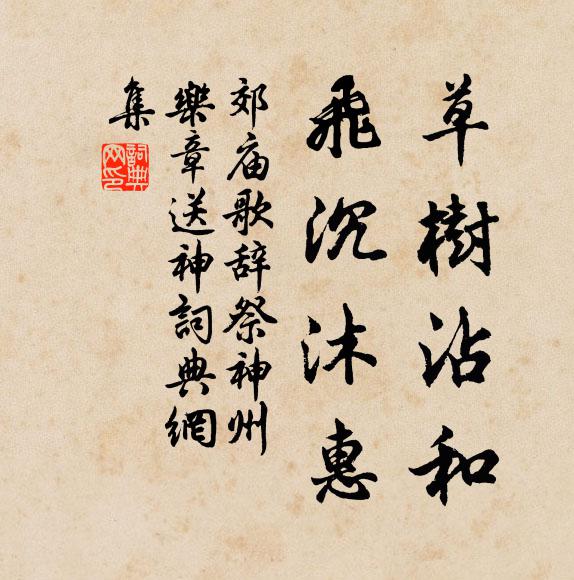 草樹沾和
飛沉沐惠
郊庙歌辞祭神州
樂章送神詞典網
集
詞典
网印